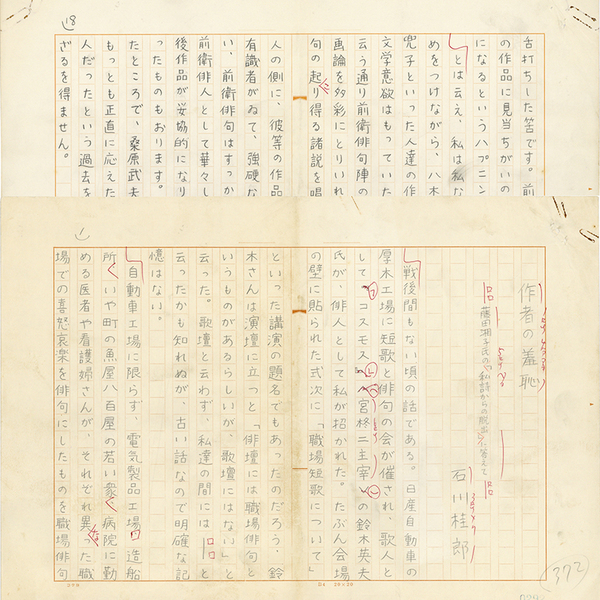 18
舌打ちした筈です。前
の作品に見当ちがいの
になるというハプニン
とは云え、私は私な
めをつけながら、八木
兜子といった人達の作
文学意欲はもっていた
云う通り前衛俳句陣の
画論を多彩にとりいれ
句の起り得る諸説を唱
人の側に、彼等の作品
有識者がゐて、強硬な
い、前衛俳句はすっか
前衛俳人として華々し
後作品が妥協的になり
ったものもおります。
たところで、桑原武夫
もっとも正直に応えた
人だったという過去を
ざるを得ません。
1
作者の羞恥
藤田湘子氏の〈私詩からの脱出〉に答えて
石川桂郎
戦後間もない頃の話である。日産自動車の
厚木工場に短歌と俳句の会が催され、歌人と
して「コスモス」(宮柊二主宰)の鈴木英夫
氏が、俳人として私が招かれた。たぶん会場
の壁に貼られた式次に「職場短歌について」
といった講演の題名でもあったのだろう、鈴
木さんは演壇に立つと「俳壇には職場俳句と
いうものがあるらしいが、歌壇にはない」と
云った。歌壇と云わず、私達の間には‥‥と
云ったかも知れぬが、古い話なので明確な記
憶はない。
自動車工場に限らず、電気製品工場、造船
所、いや町の魚屋八百屋の若い衆、病院に勤
める医者や看護婦さんが、それぞれ異った職
場での喜怒哀楽を俳句にしたものを職場俳句
(372)